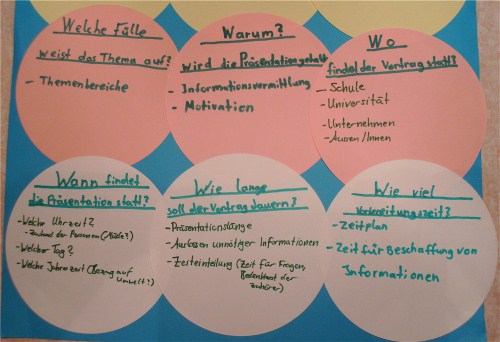 Welche Fülle
weist das Thema auf?
- Themenbereiche
Warum?
wird die Präsentation gehalten
- Informationsvermittlung
- Motivation
Wo
findet der Vortrag statt?
- Schule
- Universität
- Unternehmen
- Aussen/Innen
Wann findet
die Präsentation statt?
- Welche Uhrzeit?
- Zustand der Personen (Müde?)
- Welcher Tag?
- Welche Jahreszeit (Bezug auf
Umwelt?)
Wie lange
soll der Vortrag dauern?
- Präsentationslänge
- Auslassen unnötiger Informationen
- Zeiteinteilung (Zeit für Fragen,
Bedenkzeit der
Zuhörer)
Wie viel
Vorbereitungszeit?
- Zeitplan
- Zeit für Beschaffung von
Informationen